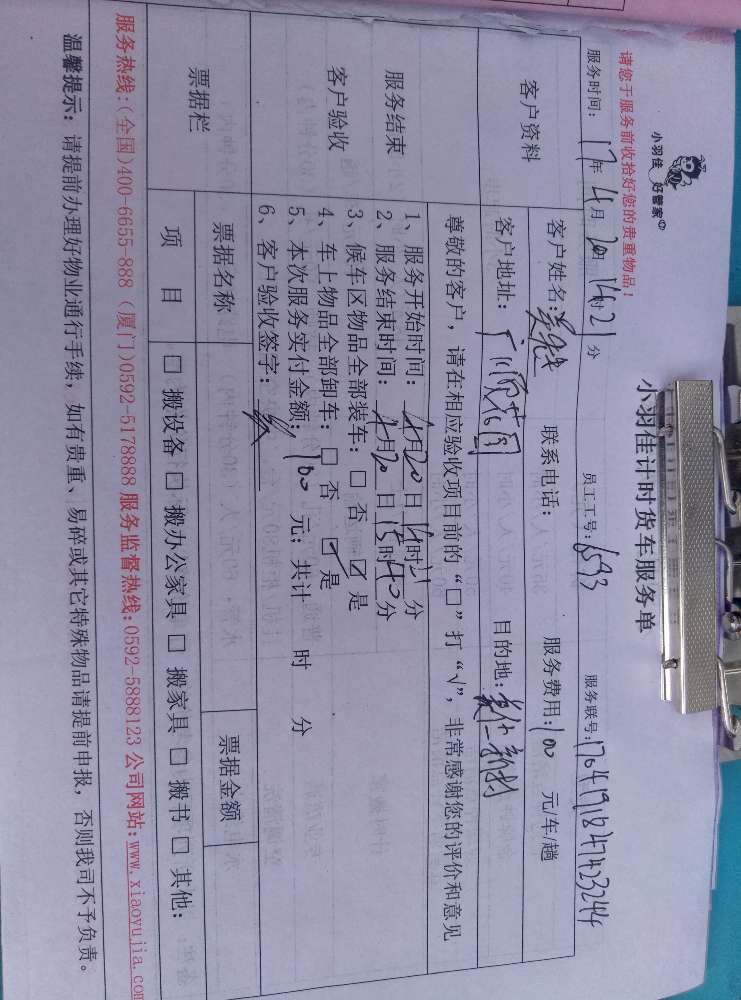 小羽佳 好管家
小羽佳计时货车服务单
请您于服务前收拾好您的贵重物品！
服务时间：17年4月20日14时21分 员工工号：6593 服务联号：1704191847423244
客户资料
客户姓名： 联系电话： 服务费用：100 元/车/趟
客户地址： 花园 目的地： 新村
服务结束
客户验收
尊敬的客户，请在相应验收项目前的“□”打“√”，非常感谢您的评价和意见
1、服务开始时间：4月20日14时21分
2、服务结束时间：4月20日15时40分
3、候车区物品全部装车：□ 否 ☑ 是
4、车上物品全部卸车：□ 否 ☑ 是
5、本次服务实付金额：100 元；共计 时 分
6、客户验收签字：
票据栏 票据名称 票据金额
项 目 □ 搬设备 □ 搬办公家具 □ 搬家具 □ 搬书 □ 其他：
服务热线：(全国)400-6655-888 (厦门)0592-5178888 服务监督热线：0592-5888123 公司网站：www.xiaoyujia.com
温馨提示：请提前办理好物业通行手续，如有贵重、易碎或其它特殊物品请提前申报，否则我司不予负责。